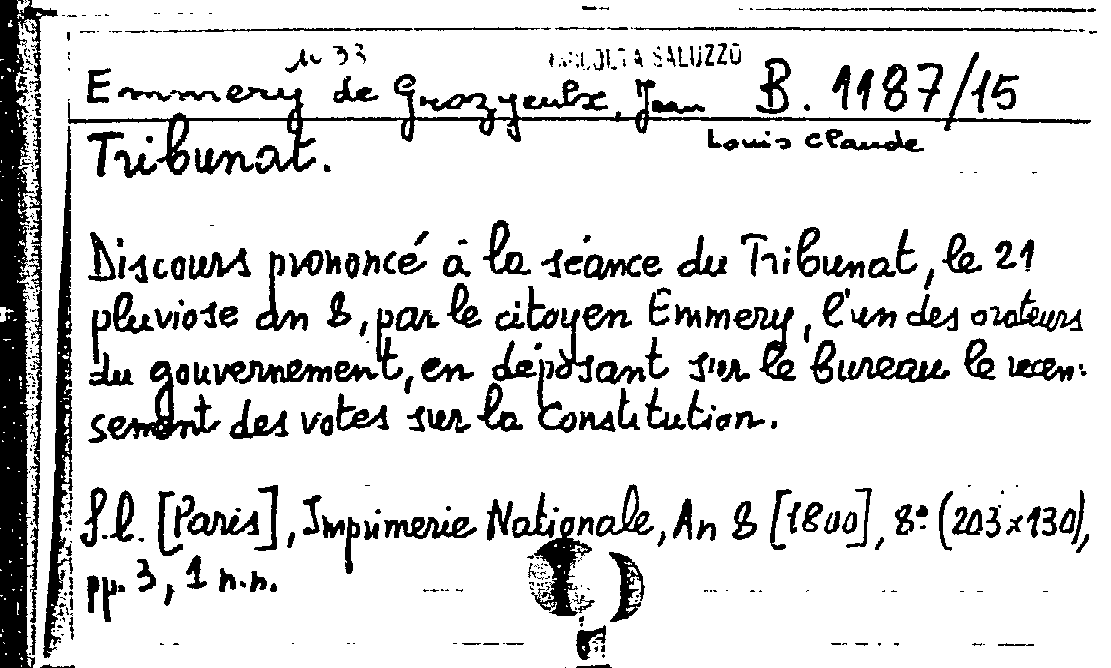 n 33 RACCOLTA SALUZZO
Emmery de Grozyeulx, Jean B. 1187/15
Louis Claude
Tribunat.
Discours prononcé à la séance du Tribunat, le 21
pluviose an 8, par le citoyen Emmery, l'un des orateurs
du gouvernement, en déposant sur le bureau le recen-
sement des votes sur la Constitution.
S.l. [Paris], Imprimerie Nationale, An 8 [1800], 8° (203x130),
pp. 3, 1 n.n.